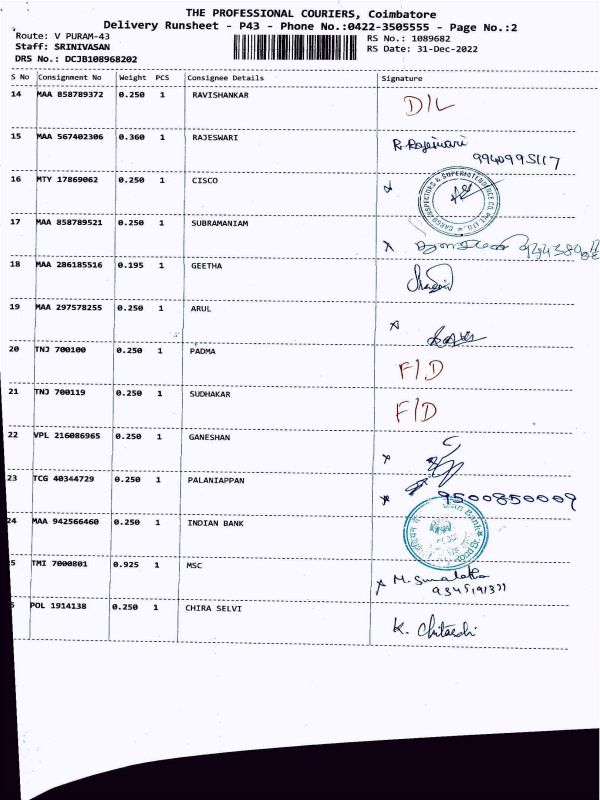 THE PROFESSIONAL COURIERS, Coimbatore
Delivery Runsheet - P43 - Phone No.:0422-3505555 - Page No.:2
Route: V PURAM-43 RS No.: 1089682
Staff: SRINIVASAN RS Date: 31-Dec-2022
DRS No.: DCJB108968202
S No Consignment No Weight PCS Consignee Details Signature
14 MAA 858789372 0.250 1 RAVISHANKAR D/L
15 MAA 567402306 0.360 1 RAJESWARI R. Rajeswari
9940995117
16 MTY 17869062 0.250 1 CISCO
CARGO INSPECTORS & SUPERINTENDENCE CO. PVT. LTD.
17 MAA 858789521 0.250 1 SUBRAMANIAM
18 MAA 286185516 0.195 1 GEETHA
19 MAA 297578255 0.250 1 ARUL
20 TNJ 700100 0.250 1 PADMA F/D
21 TNJ 700119 0.250 1 SUDHAKAR F/D
22 VPL 216086965 0.250 1 GANESHAN
23 TCG 40344729 0.250 1 PALANIAPPAN 9500850009
24 MAA 942566460 0.250 1 INDIAN BANK
5 TMI 7000801 0.925 1 MSC M. Sumalatha
POL 1914138 0.250 1 CHIRA SELVI K.